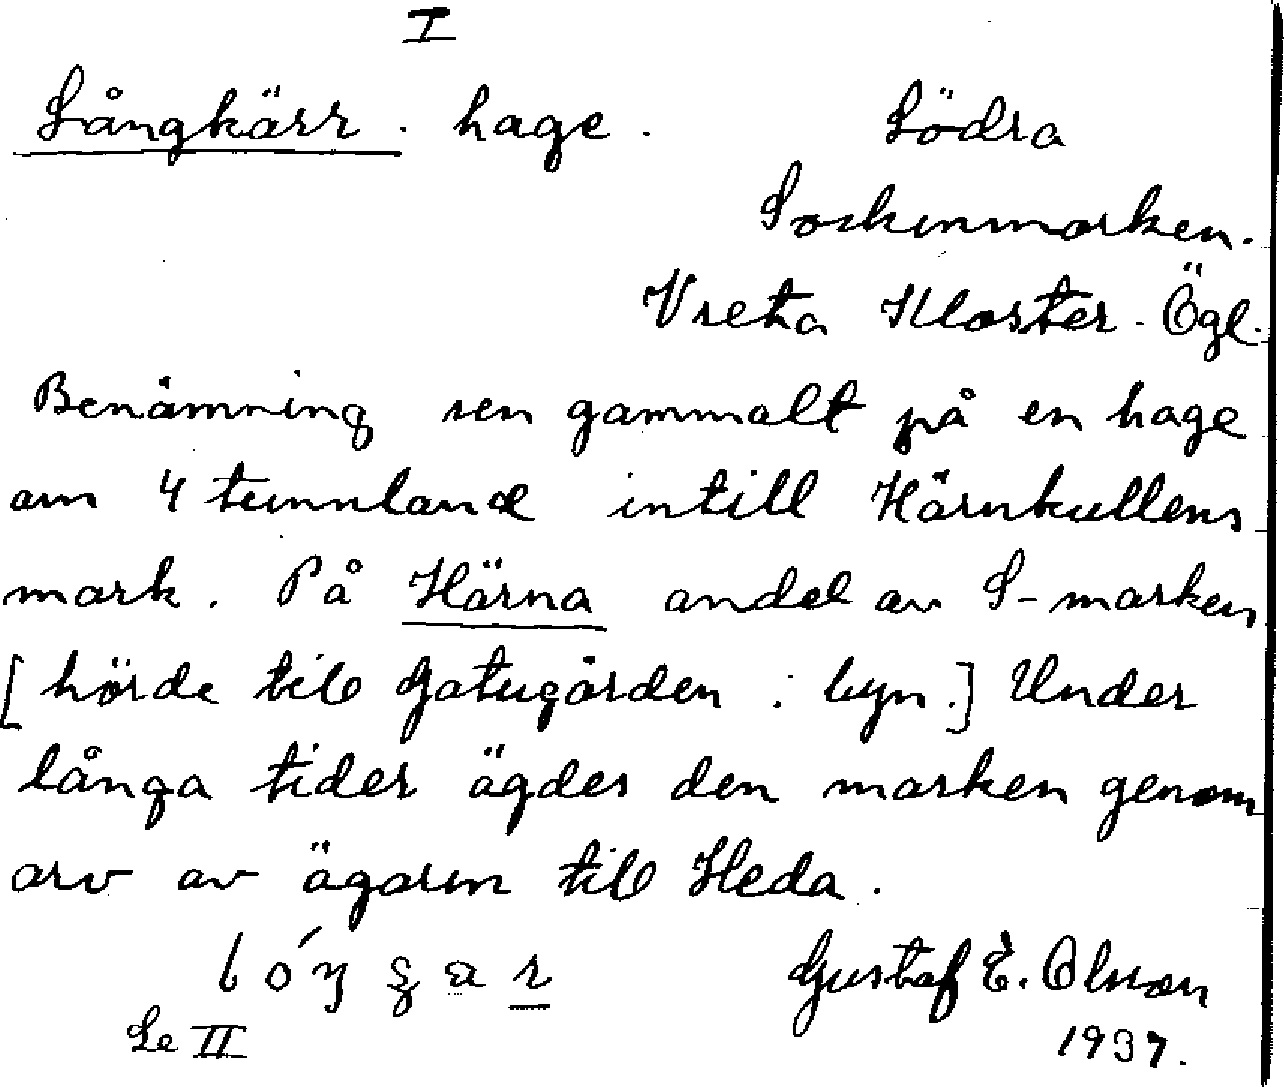 I
Långkärr. hage. Södra
Sockenmarken.
Vreta Kloster. Ögl.
Benämning sen gammalt på en hage
om 4 tunnland intill Härnkullens
mark. På Härna andel av S-marken
[hörde till Gatugården i byn.] Under
långa tider ägdes den marken genom
arv av ägaren till Heda.
Gustaf E. Olsson
Se II
1937.